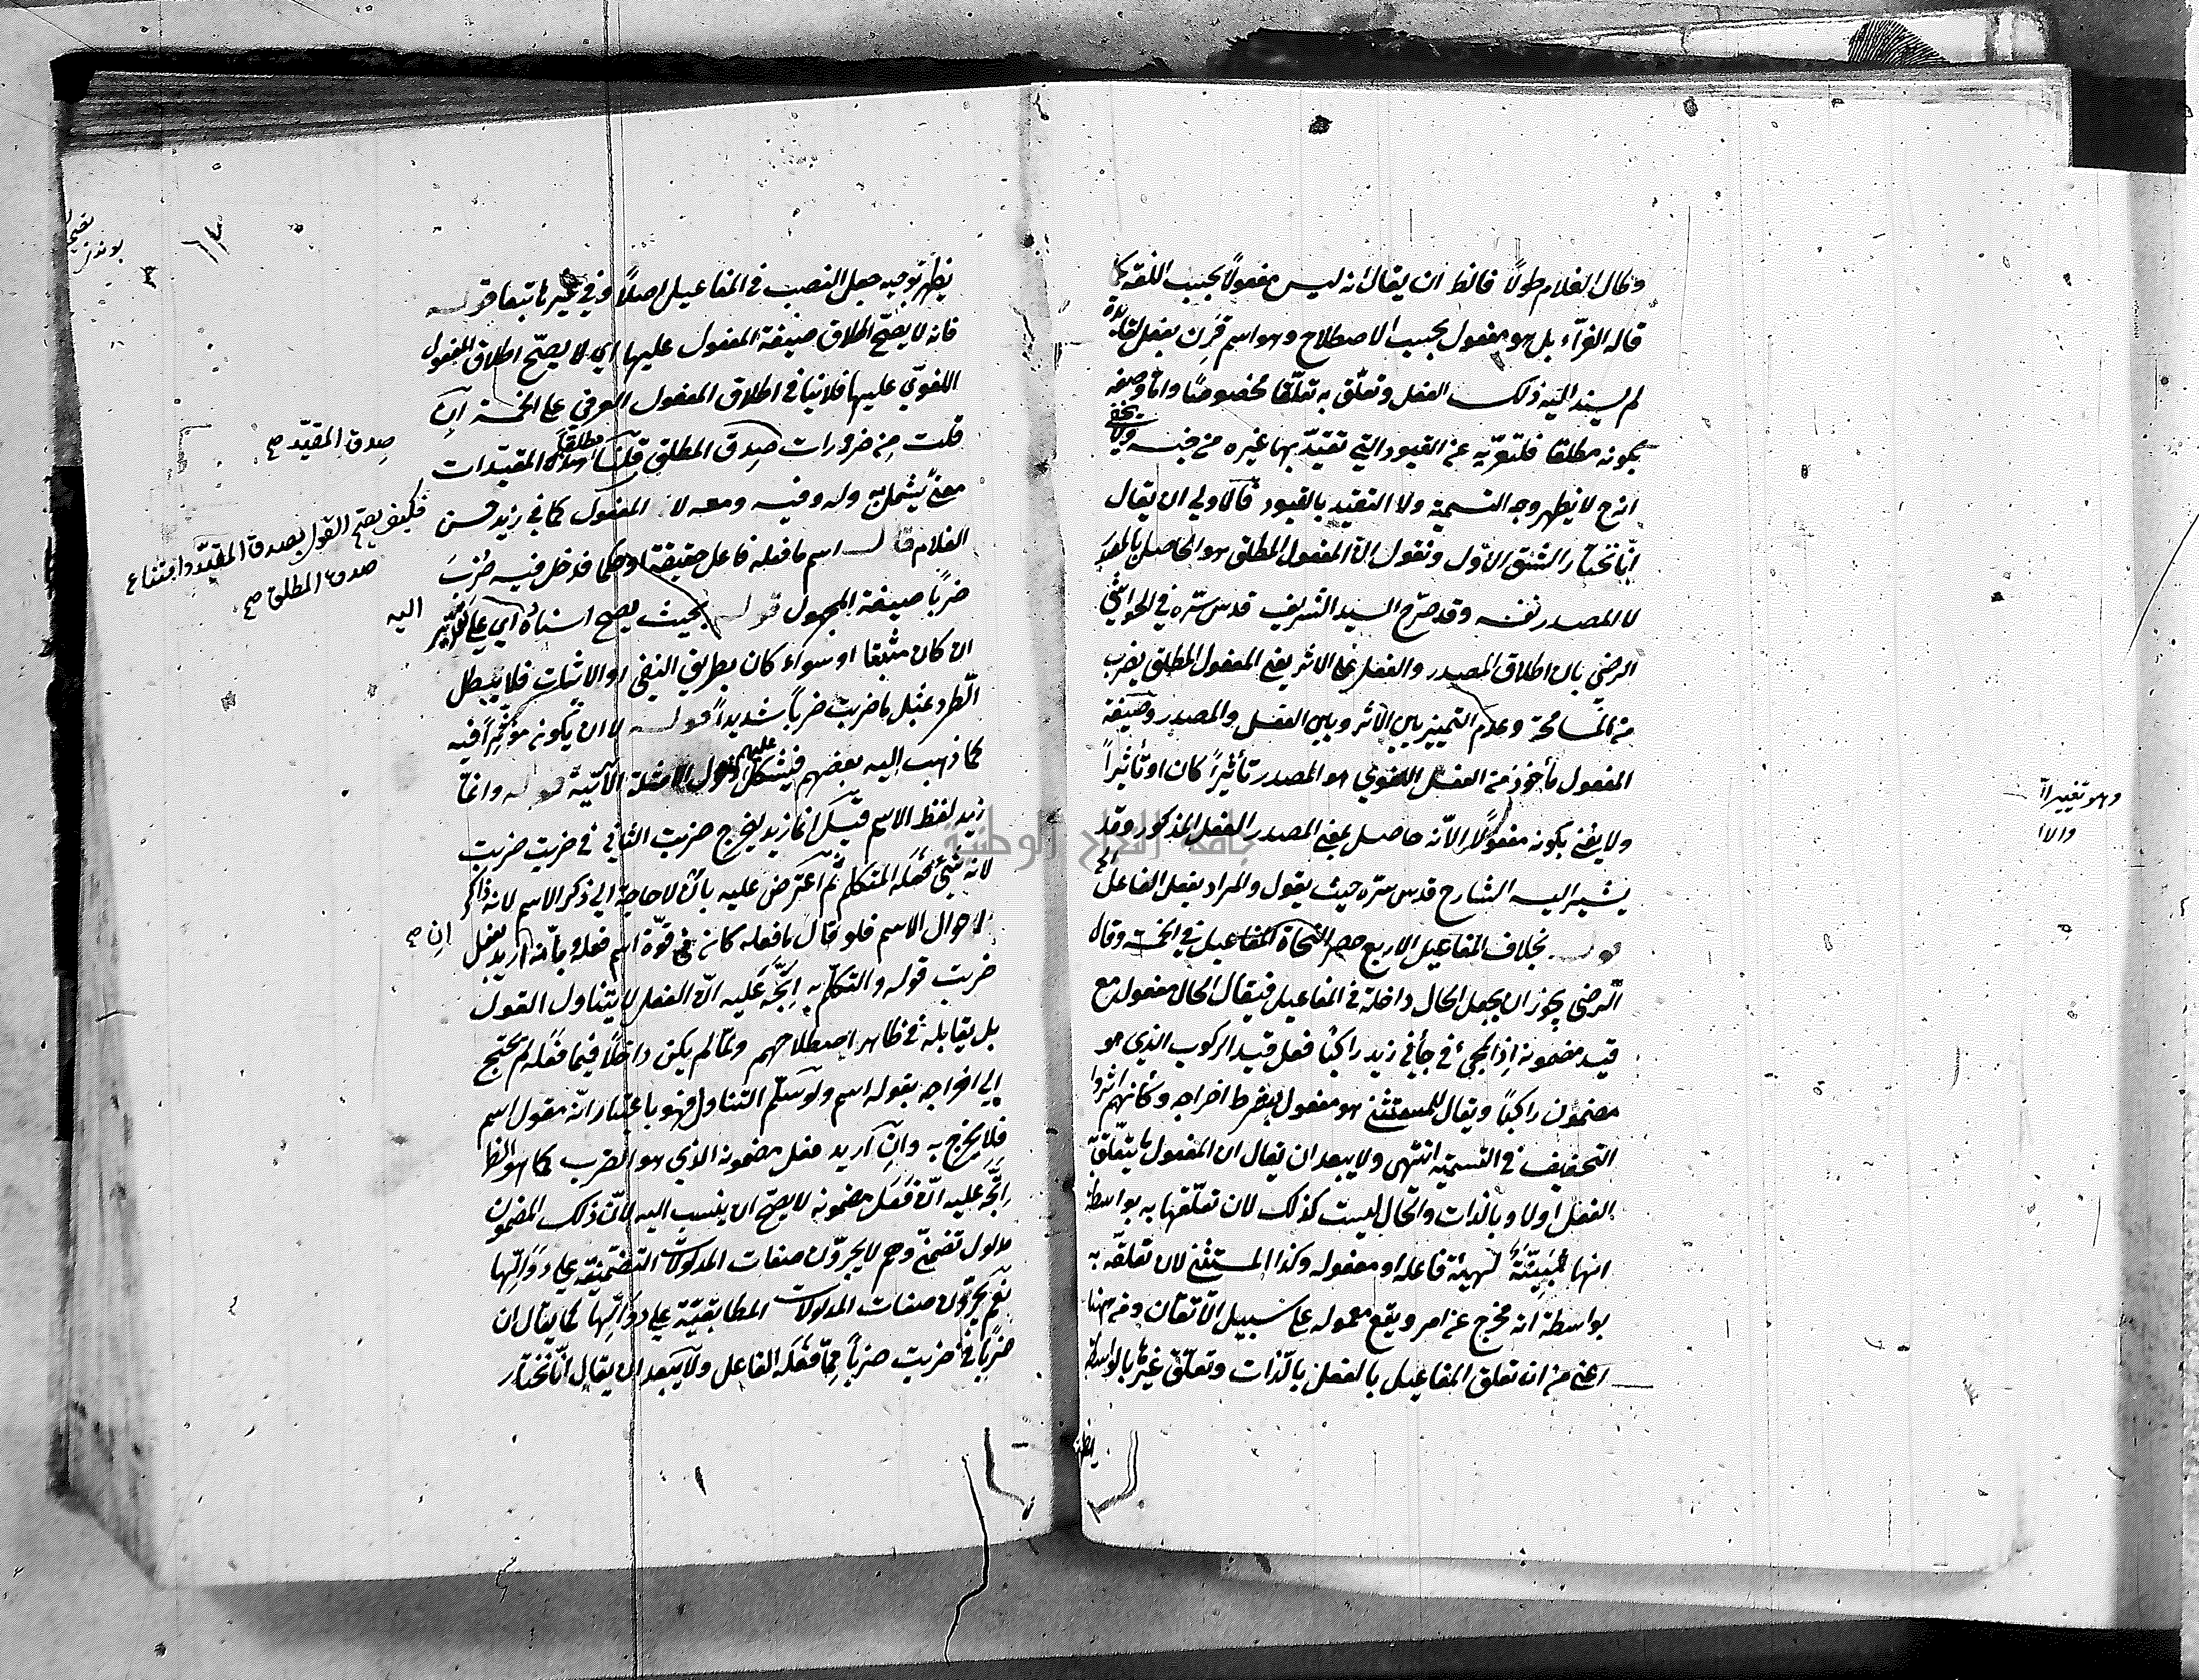 وطال الغلام طولا فالظ ان يقال انه ليس مفعولا بحسب اللغة كما
قاله الفرّاء بل هو مفعول بحسب الاصطلاح وهو اسم قرن بفعل لفايدة
لم يسند اليه ذلك الفعل وتعلّق به تعلّقا مخصوصا وامّا وصفه
بكونه مطلقا فلتعرّيه عن القيود التي تقيّد بها غيره من جنسه ولا يخفى
انه ح لا يظهر وجه التسمية ولا التقييد بالقيود فالاولى ان يقال
انّا نختار الشق الاوّل ونقول انّ المفعول المطلق هو الحاصل بالمصدر
لا المصدر نفسه وقد صرّح السيد الشريف قدس سرّه في الحواشي
الرضي بان اطلاق المصدر والفعل على الاثر يعني المفعول المطلق بضرب
من المسامحة وعدم التمييز بين الاثر وبين الفعل والمصدر وصيغة
المفعول مأخوذ من الفعل اللغوي هو المصدر تأثيرًا كان او تأثّرًا
ولا يعني بكونه مفعولا الا انه حاصل بمعنى المصدر الفعل المذكور وقد
يشير اليه الشارح قدس سرّه حيث يقول والمراد بفعل الفاعل الخ
قوله بخلاف المفاعيل الاربع حصر النحاة المفاعيل في الخمسة وقال
الرضي يجوز ان يجعل الحال داخلة في المفاعيل فيقال الحال مفعول مع
قيد مضمونه اذ المجيء في جاءني زيد راكبا فعل قيد الركوب الذي هو
مضمون راكبًا ويقال للمستثنى هو مفعول بشرط اخراجه وكأنهم اثروا
التخفيف في التسمية انتهى ولا يبعد ان يقال ان المفعول ما يتعلّق به
الفعل اولا وبالذات والحال ليست كذلك لان تعلّقها به بواسطة
انها مبيّنة لهيئة فاعله او مفعوله وكذا المستثنى لان تعلّقه به
بواسطة انه مخرج عن امر ويقع معموله على سبيل الاتفاق ومن ههنا
اعني من ان تعلق المفاعيل بالفعل بالذات وتعلّق غيرها بالواسطة
يظهر
وهو تغيير
والا
يظهر توجيه جعل النصب في المفاعيل اصلا وفي غيرها تبعا قوله
فانه لا يصحّ اطلاق صيغة المفعول عليها اي لا يصحّ اطلاق المفعول
اللغوي عليها فلا ينافي اطلاق المفعول العرفي على الخمسة ان
قلت من ضرورات صدق المطلق قلنا مطلقا المقيّدات
معنى يشمل به وله وفيه ومعه لا المفعول كما في زيد حسن
الغلام قال اسم ما فعله فاعل حقيقة او حكما فدخل فيه ضرب
ضربًا صيغة المجهول قوله بحيث يصح اسناده اي على تقدير
ان كان مثبتا او سواء كان بطريق النفي او الاثبات فلا يبطل
الطرد بمثل ما ضربت ضربًا شديدًا قوله لا ان يكون مؤثرا فيه
كما ذهب اليه بعضهم فيشكل عليهم الامثلة الآتية قوله وانما
زيد لفظ الاسم قيل انما زيد ليخرج ضربت الثاني في ضربت ضربت
لانه شيء فعله المتكلم ثم اعترض عليه بان لا حاجة الى ذكر الاسم لانه ذاكر
لاحوال الاسم فلو قال ما فعله كان في قوّة اسم فعله وبأنه اريد بفعل
ضربت قوله والتكلّم به اتّجه عليه انّ الفعل لا يتناول القول
بل يقابله في ظاهر اصطلاحهم ولما لم يكن داخلا فيما فعله لم يحتج
الى اخراجه بقوله اسم ولو سلّم التناول فهو باعتبار انه مقول اسم
فلا يخرج به وان اريد فعل مضمونه الذي هو الضرب كما هو الظ
اتّجه عليه انّ فعل مضمونه لا يصحّ ان ينسب اليه لانّ ذلك المضمون
مدلول تضمنيّ وهم لا يجرون صفات المدلولات التضمنية على دوالّها
نعم يجرون صفات المدلولات المطابقيّة على دوالّها كما يقال ان
ضربًا في ضربت ضربًا ممّا فعله الفاعل ولا يبعد ان يقال انّا نختار
٦٧
صدق المقيّد صح
فكيف يصحّ القول بصدق المقيّد وامتناع
صدق المطلق صح
اليه
ان صح
جامعة النجاح الوطنية